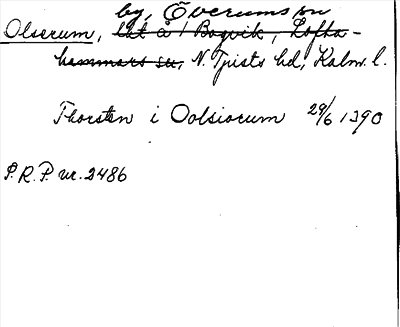 by, Överums sn
Olserum, lht å Bogvik, Lofta-
hammars sn, N. Tjusts hd, Kalm. l.
Thorsten i Oolsiorum 29/6 1390
S.R.P. nr. 2486